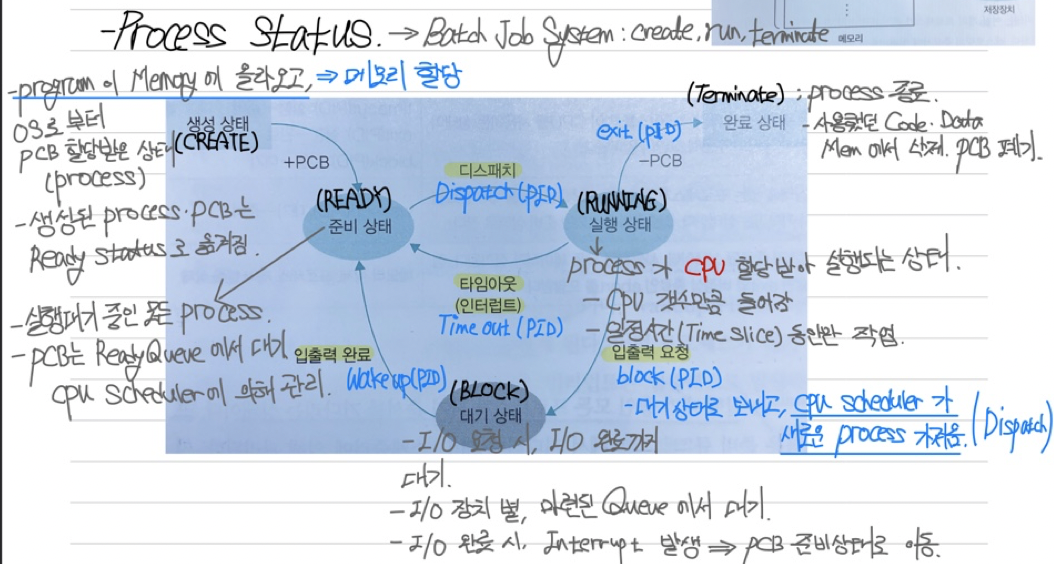 저장장치
메모리
-Process Status. → Batch Job System : create, run, terminate
-program이 Memory에 올라오고, ⇒ 메모리 할당
OS로부터
PCB 할당받은 상태
(process)
-생성된 process·PCB는
Ready status로 옮겨짐.
생성 상태
(CREATE)
+PCB
(Terminate) : process 종료.
완료 상태
-사용했던 Code·Data
Mem에서 삭제. PCB 폐기.
exit (PID)
-PCB
디스패치
Dispatch (PID)
(READY)
준비 상태
(RUNNING)
실행 상태
process가 CPU 할당받아 실행되는 상태.
- CPU 갯수만큼 들어감
- 일정시간(Time Slice) 동안만 작업.
타임아웃
(인터럽트)
Time out (PID)
-실행대기 중인 모든 process.
-PCB는 Ready Queue에서 대기
CPU Scheduler에 의해 관리.
입출력 완료
Wake up(PID)
입출력 요청
block (PID)
-대기상태로 보내고, CPU scheduler가
새로운 process 가져옴. (Dispatch)
(BLOCK)
대기 상태
- I/O 요청 시, I/O 완료까지
대기.
- I/O 장치 별, 마련된 Queue에서 대기.
- I/O 완료 시, Interrupt 발생 ⇒ PCB 준비상태로 이동.